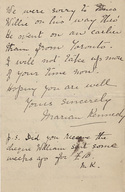 We were sorry to miss
Willie on his way this
He went on an earlier
than from Toronto.
I will not take up more
of your time now.
Hoping you are well
Yours sincerely
Marian Kennedy
P.S. Did you receive the
cheque William sent some
weeks ago for £18